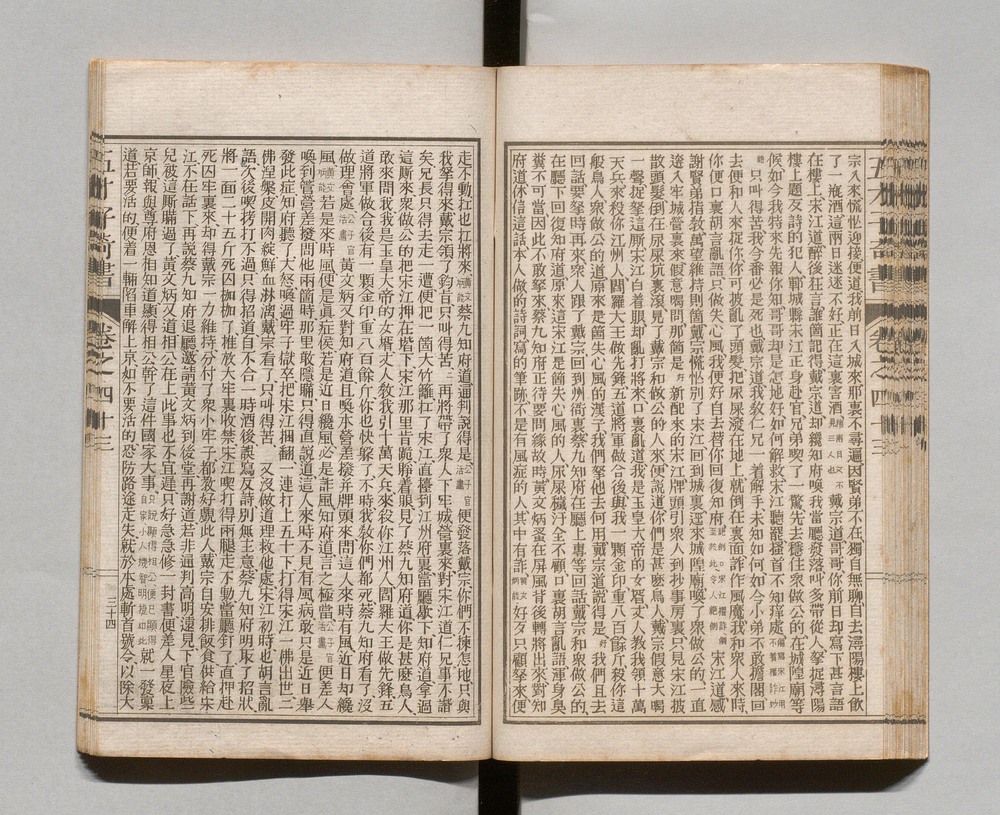 宗入來慌忙迎接便道我前日入城來那裏不尋遍因賢弟不在獨自無聊自去潯陽樓上飲
了一瓶酒這兩日迷迷不好正在這裏害酒戴宗道哥哥你前日却寫下甚言語
在樓上宋江道醉後狂言誰箇記得戴宗道却纔知府喚我當廳發落叫多帶從人拏捉潯陽
樓上題反詩的犯人鄆城縣宋江正身赴官兄弟喫了一驚先去穩住衆做公的在城隍廟等
候如今我特來先報你知哥哥却是怎地好如何解救宋江聽罷搔首不知痒處
只叫得苦我今番必是死也戴宗道我敎仁兄一着解手未知如何如今小弟不敢擔閣回
去便和人來捉你你可披亂了頭髮把尿屎潑在地上就倒在裏面詐作風魔我和衆人來時
你便口裏胡言亂語只做失心風我便好自去替你回復知府宋江道感
謝賢弟指敎萬望維持則箇戴宗慌忙別了宋江回到城裏逕來城隍廟喚了衆做公的一直
逩入牢城營裏來假意喝問那箇是新配來的宋江牌頭引衆人到抄事房裏只見宋江披
散頭髮倒在尿屎坑裏滾見了戴宗和做公的人來便說道你們是甚麽鳥人戴宗假意大喝
一聲捉拏這厮宋江白着眼却亂打將來口裏亂道我是玉皇大帝的女壻丈人敎我領十萬
天兵來殺你江州人閻羅大王做先鋒五道將軍做合後與我一顆金印重八百餘斤殺你這
般鳥人衆做公的道原來是箇失心風的漢子我們拏他去何用戴宗道說得是我們且去
回話要拏時再來衆人跟了戴宗回到州衙裏蔡九知府在廳上專等回話戴宗和衆做公的
在廳下回復知府道原來這宋江是箇失心風的人尿屎穢汙全不顧口裏胡言亂語渾身臭
糞不可當因此不敢拏來蔡九知府正待要問緣故時黃文炳蚤在屏風背後轉將出來對知
府道休信這話本人做的詩詞寫的筆跡不是有風症的人其中有詐好歹只顧拏來便
走不動扛也扛將來蔡九知府道通判說得是便發落戴宗你們不揀怎地只與
我拏得來戴宗領了鈞旨只叫得苦再將帶了衆人下牢城營裏來對宋江道仁兄事不諧
矣兄長只得去走一遭便把一箇大竹籮扛了宋江直擡到江州府裏當廳歇下知府道拏過
這厮來衆做公的把宋江押在堦下宋江那里肯跪睜着眼見了蔡九知府道你是甚麽鳥人
敢來問我我是玉皇大帝的女壻丈人敎我引十萬天兵來殺你江州人閻羅大王做先鋒五
道將軍做合後有一顆金印重八百餘斤你也快躱了不時我敎你們都死蔡九知府看了沒
做理會處黃文炳又對知府道且喚本營差撥并牌頭來問這人來時有風近日却纔
風若是來時風便是眞症候若是近日纔風必是詐風知府道言之極當便差人
喚到管營差撥問他兩箇時那里敢隱瞞只得直說道這人來時不見有風病敢只是近日舉
發此症知府聽了大怒喚過牢子獄卒把宋江捆翻一連打上五十下打得宋江一佛出世二
佛湼槃皮開肉綻鮮血淋漓戴宗看了只叫得苦又沒做道理救他處宋江初時也胡言亂
語次後喫拷打不過只得招道自不合一時酒後誤寫反詩別無主意蔡九知府明取了招狀
將一面二十五斤死囚枷枷了推放大牢裏收禁宋江喫打得兩腿走不動當廳釘了直押赴
死囚牢裏來却得戴宗一力維持分付了衆小牢子都敎好覷此人戴宗自安排飯食供給宋
江不在話下再說蔡九知府退廳邀請黃文炳到後堂再謝道若非通判高明遠見下官險些
兒被這厮瞞過了黃文炳又道相公在上此事也不宜遲只好急急修一封書便差人星夜上
京師報與尊府恩相知道顯得相公幹了這件國家大事就一發稟
道若要活的便着一輛陷車解上京如不要活的恐防路途走失就於本處斬首號令以除大
五才子奇書
卷之四十三
三十四